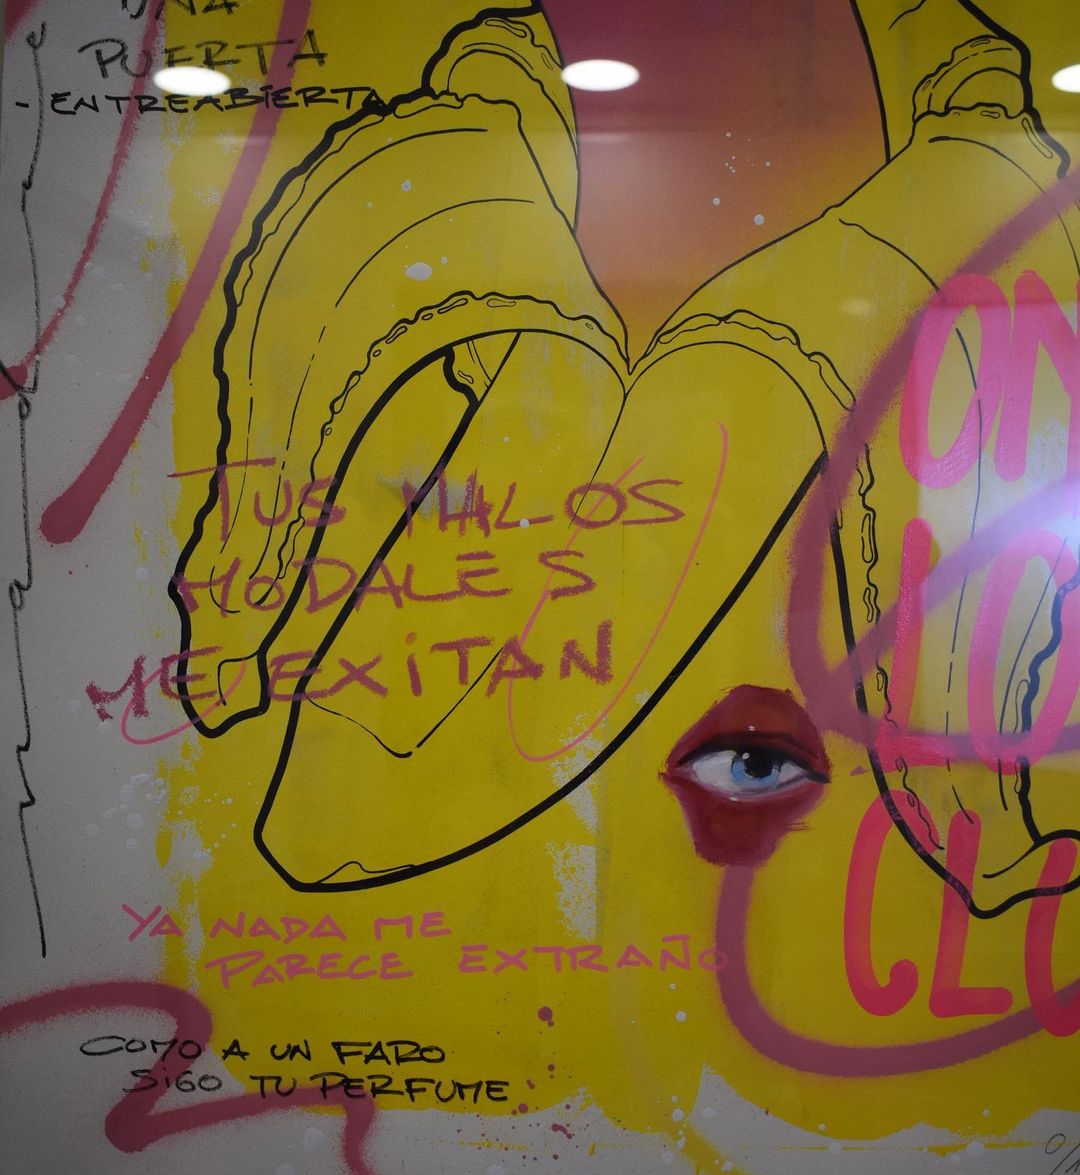 UNA
PUERTA
- ENTREABIERTA
TUS MALOS
MODALES
ME EXITAN
ON
LO
CLU
YA NADA ME
PARECE EXTRAÑO
COMO A UN FARO
SIGO TU PERFUME